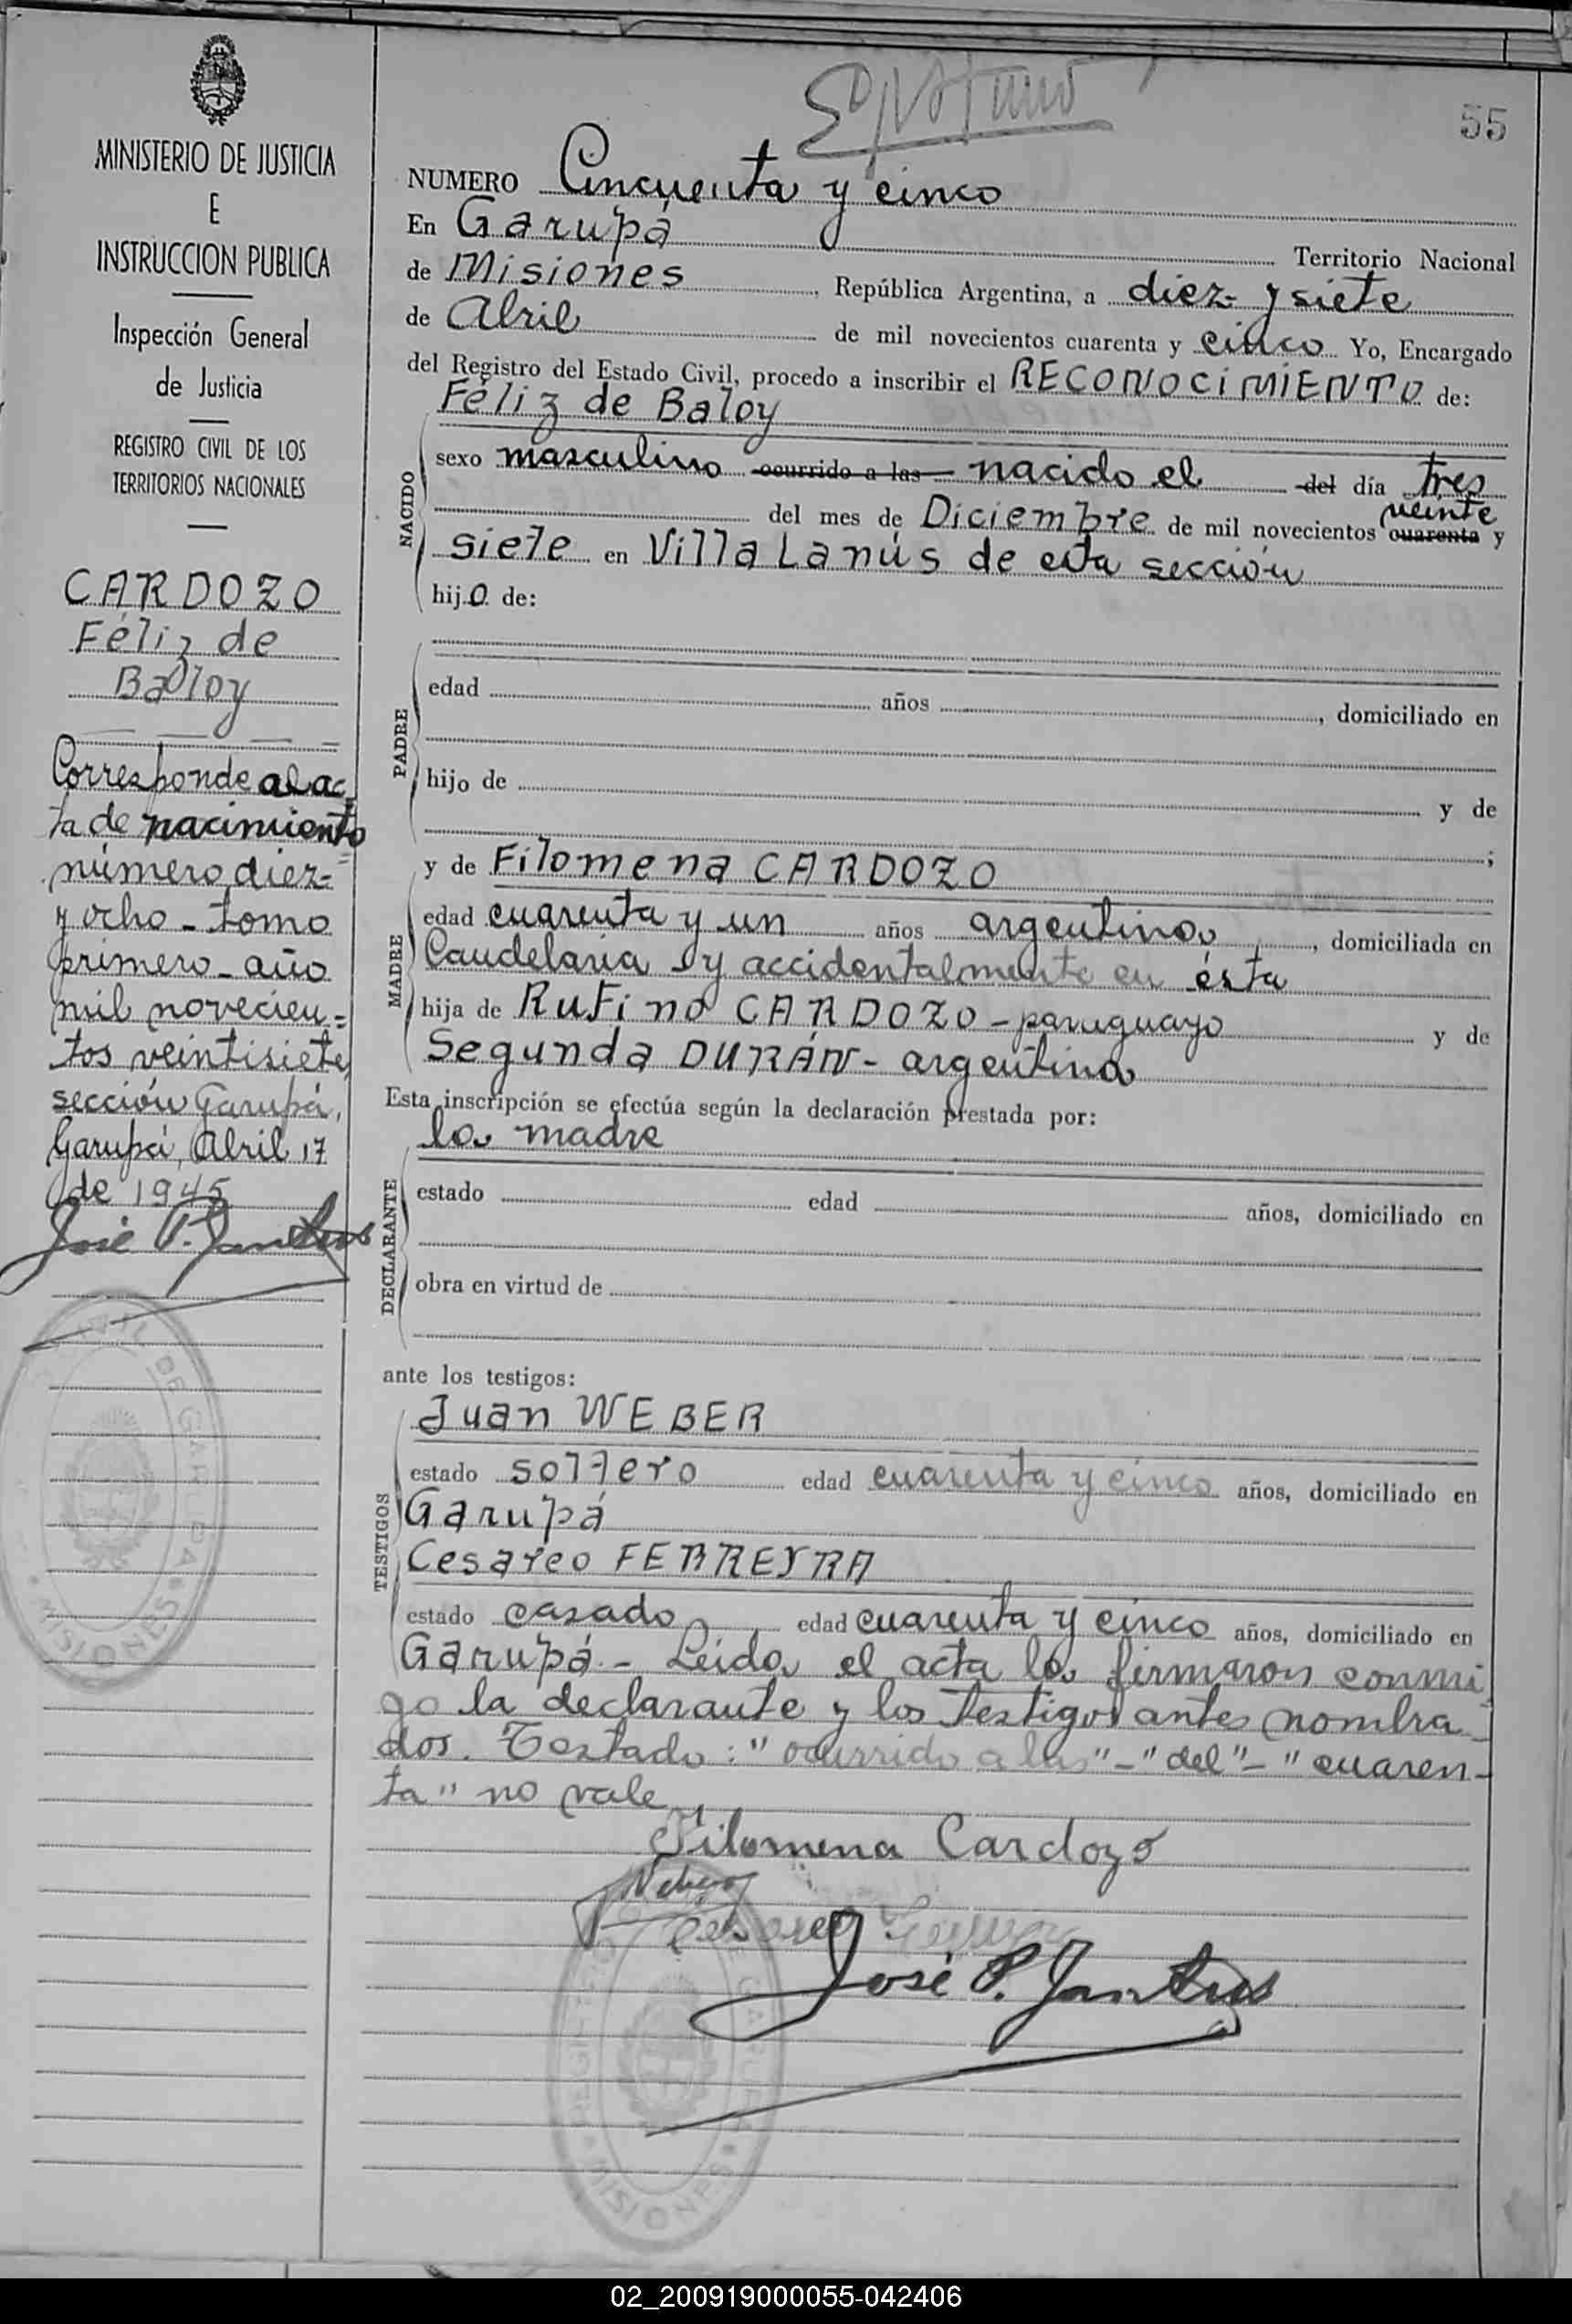 55
MINISTERIO DE JUSTICIA
E
INSTRUCCION PUBLICA
Inspección General
de Justicia
REGISTRO CIVIL DE LOS
TERRITORIOS NACIONALES
CARDOZO
Féliz de
Baloy
Corresponde al ac_
ta de nacimiento
número diez=
y ocho - tomo
primero - año
mil novecien=
tos veintisiete,
sección Garupá,
Garupá, Abril 17
de 1945
José P.
NUMERO Cincuenta y cinco
En Garupá Territorio Nacional
de Misiones, República Argentina, a diez y siete
de Abril de mil novecientos cuarenta y cinco Yo, Encargado
del Registro del Estado Civil, procedo a inscribir el RECONOCIMIENTO de:
Féliz de Baloy
NACIDO
sexo masculino ocurrido a las nacido el del día tres
veinte
del mes de Diciembre de mil novecientos cuarenta y
siete en Villa Lanús de esta sección
hijo de:
PADRE
edad años, domiciliado en
hijo de y de
;
MADRE
y de Filomena CARDOZO
edad cuarenta y un años argentina, domiciliada en
Candelaria y accidentalmente en ésta
hija de Rufino CARDOZO - paraguayo y de
Segunda DURÁN - argentina
Esta inscripción se efectúa según la declaración prestada por:
la madre
DECLARANTE
estado edad años, domiciliado en
obra en virtud de
ante los testigos:
TESTIGOS
Juan WEBER
estado soltero edad cuarenta y cinco años, domiciliado en
Garupá
Cesareo FERREYRA
estado casado edad cuarenta y cinco años, domiciliado en
Garupá - Leída el acta la firmaron conmi_
go la declarante y los testigos antes nombra_
dos. Testado: "ocurrido a las" - "del" - "cuaren-
ta" no vale
Filomena Cardozo
Weber
Cesareo
José P.
DE GARUPA
MISIONES
DE GARUPA
MISIONES
02_200919000055-042406